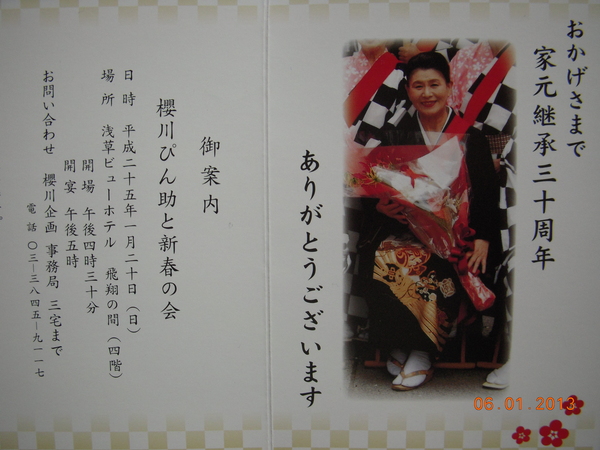 おかげさまで
家元継承三十周年
ありがとうございます
御案内
櫻川ぴん助と新春の会
日時 平成二十五年一月二十日（日）
場所 浅草ビューホテル 飛翔の間（四階）
開場 午後四時三十分
開宴 午後五時
お問い合わせ 櫻川企画 事務局 三宅まで
電話 〇三―三八四五―九一一七
06.01.2013